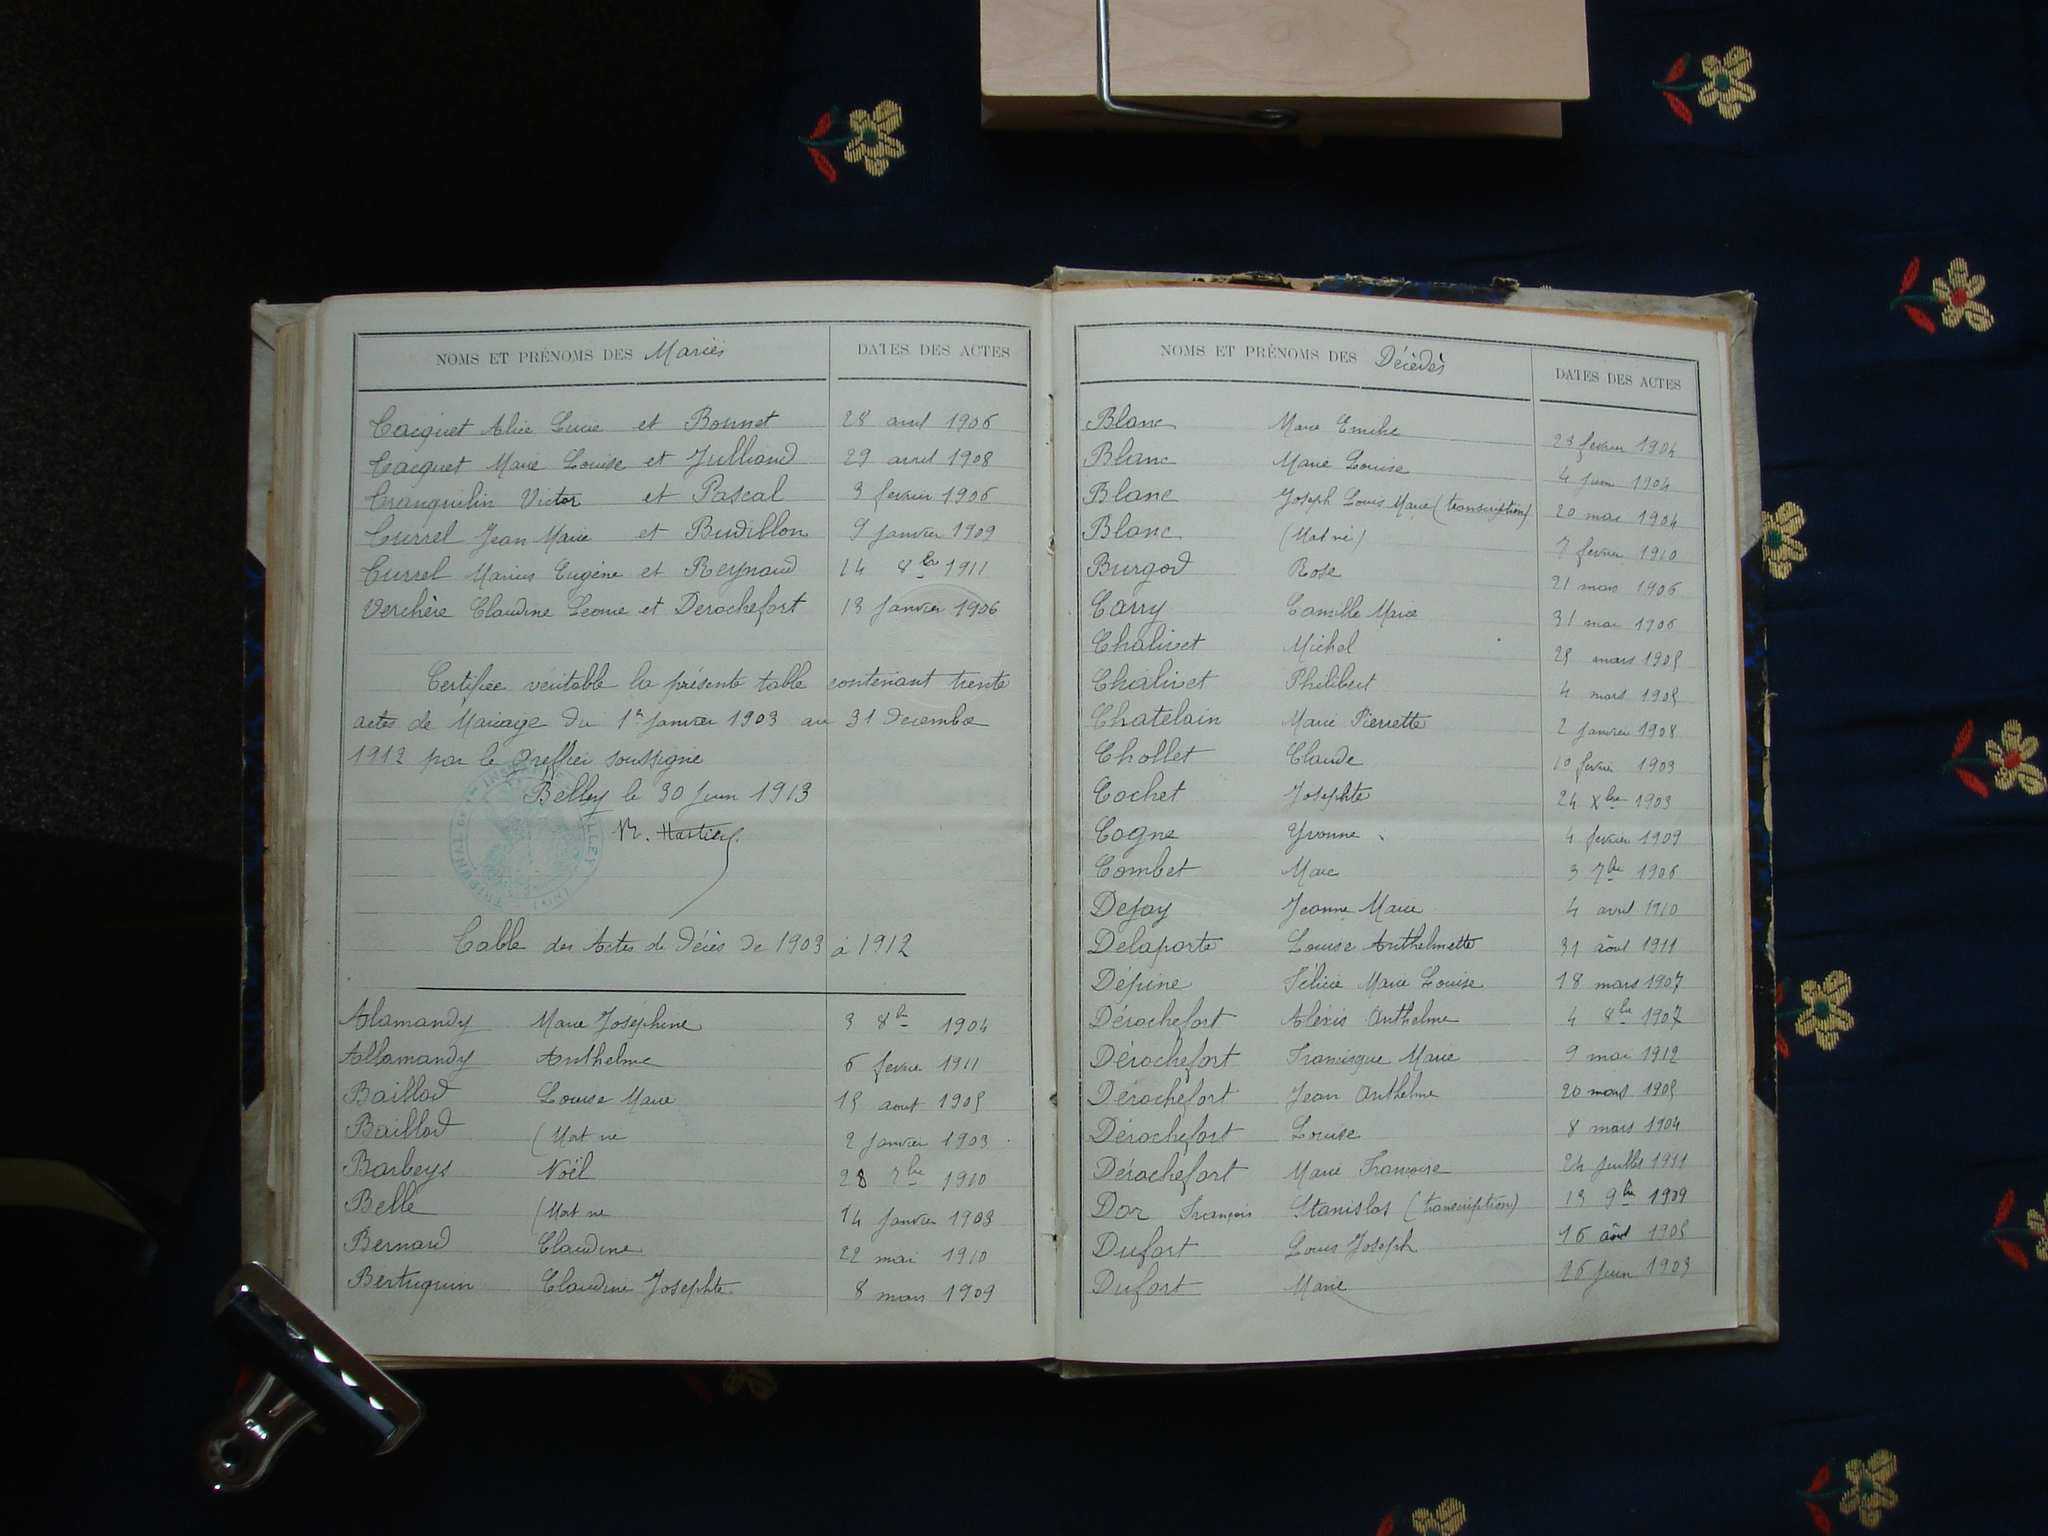 NOMS ET PRÉNOMS DES Mariés DATES DES ACTES
Tacquet Alice Lucie et Bonnet 28 avril 1906
Tacquet Marie Louise et Julliand 29 avril 1908
Tranquilin Victor et Pascal 3 fevrier 1906
Turrel Jean Marie et Budillon 9 Janvier 1909
Turrel Marius Eugène et Reynaud 14 8bre 1911
Verchère Claudine Leonie et Derochefort 13 Janvier 1906
Certifiee véritable la présente table contenant trente
actes de Mariage du 1er Janvier 1903 au 31 decembre
1912 par le Greffier soussigné
Belley le 30 Juin 1913
Table des Actes de Décès de 1903 à 1912
Alamandy Marie Joséphine 3 8bre 1904
Allamandy Anthelme 6 fevrier 1911
Baillod Louise Marie 15 aout 1905
Baillod (Mort né 2 Janvier 1903
Barbeys Noël 28 1910
Belle (Mort né 14 Janvier 1903
Bernard Claudine 22 mai 1910
Bertuquin Claudine Josephte 8 mars 1909
NOMS ET PRÉNOMS DES Décédés DATES DES ACTES
Blanc Marie Emilie 23 fevrier 1904
Blanc Marie Louise 4 Juin 1904
Blanc Joseph Louis Marie (transcription) 20 mai 1904
Blanc (Mort né) 7 fevrier 1910
Burgod Rose 21 mars 1906
Carry Camille Marie 31 mai 1906
Chalivet Michel 25 mars 1905
Chalivet Philibert 4 mars 1905
Chatelain Marie Pierrette 2 Janvier 1908
Chollet Claude 10 fevrier 1903
Cochet Josephte 24 Xbre 1903
Cogne Yvonne 4 fevrier 1909
Combet Marc 3 7bre 1906
Dejay Jeanne Marie 4 avril 1910
Delaporte Louise Anthelmette 31 août 1911
Dépine Félicie Marie Louise 18 mars 1907
Dérochefort Aléxis Anthelme 4 8bre 1907
Dérochefort Francisque Marie 9 mai 1912
Dérochefort Jean Anthelme 20 mars 1905
Dérochefort Louise 8 mars 1904
Dérochefort Marie Françoise 24 Juillet 1911
Dor François Stanislas (transcription) 13 9bre 1909
Dufort Louis Joseph 16 août 1905
Dufort Marie 26 Juin 1903